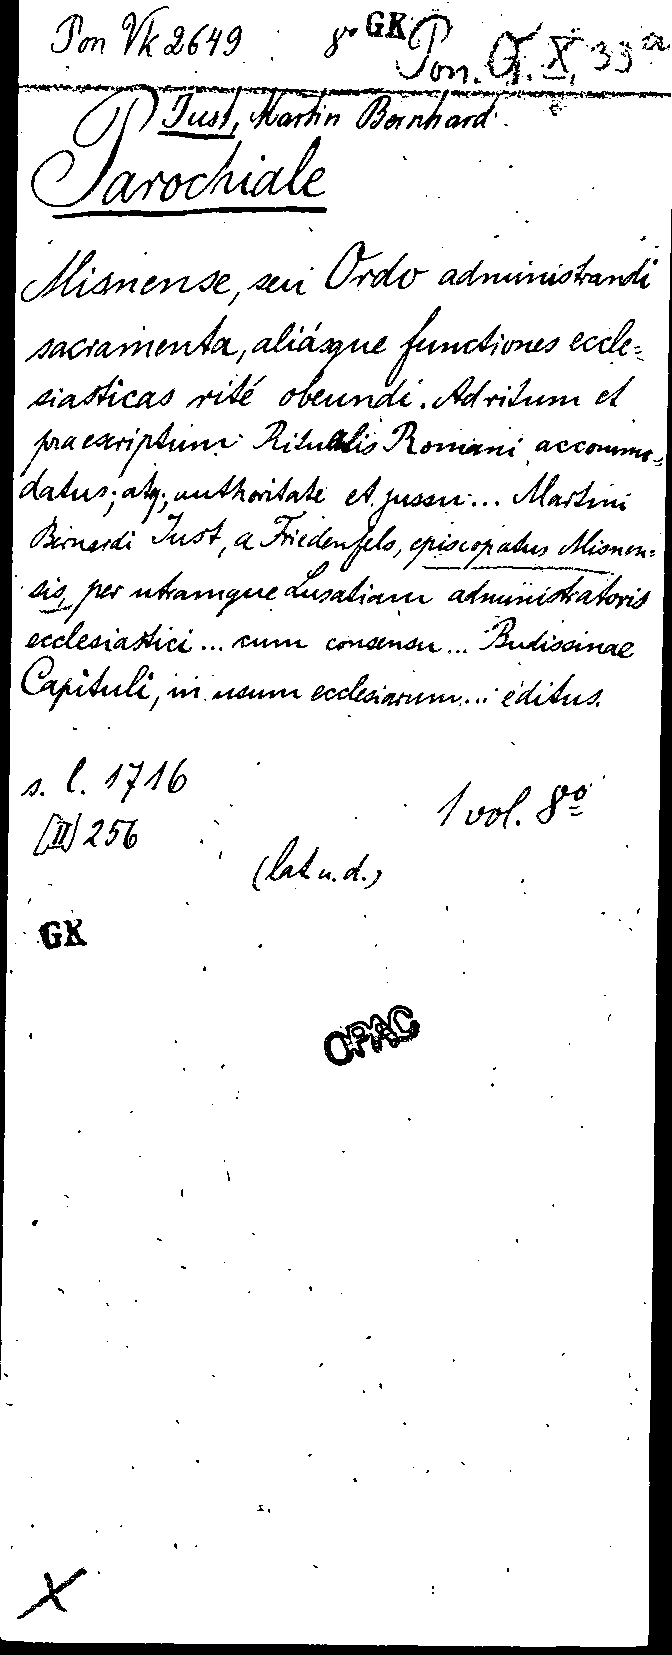 Pon Vk 2649 8° GK Pon. G. X, 33 a
Just, Martin Bernhard
Parochiale
Misnense, seu Ordo administrandi
sacramenta, aliásque functiones eccle=
siasticas rité obeundi. Ad ritum et
praescriptum Ritualis Romani accommo=
datus; atq; authoritate et jussu... Martini
Bernardi Just, a Friedenfels, episcopatus Misnen=
sis, per utramque Lusatiam administratoris
ecclesiastici... cum consensu... Budissinae
Capituli, in usum ecclesiarum... editus.
s. l. 1716
1 vol. 8°
[II] 256
(lat u. d.)
GK
OPAC
X